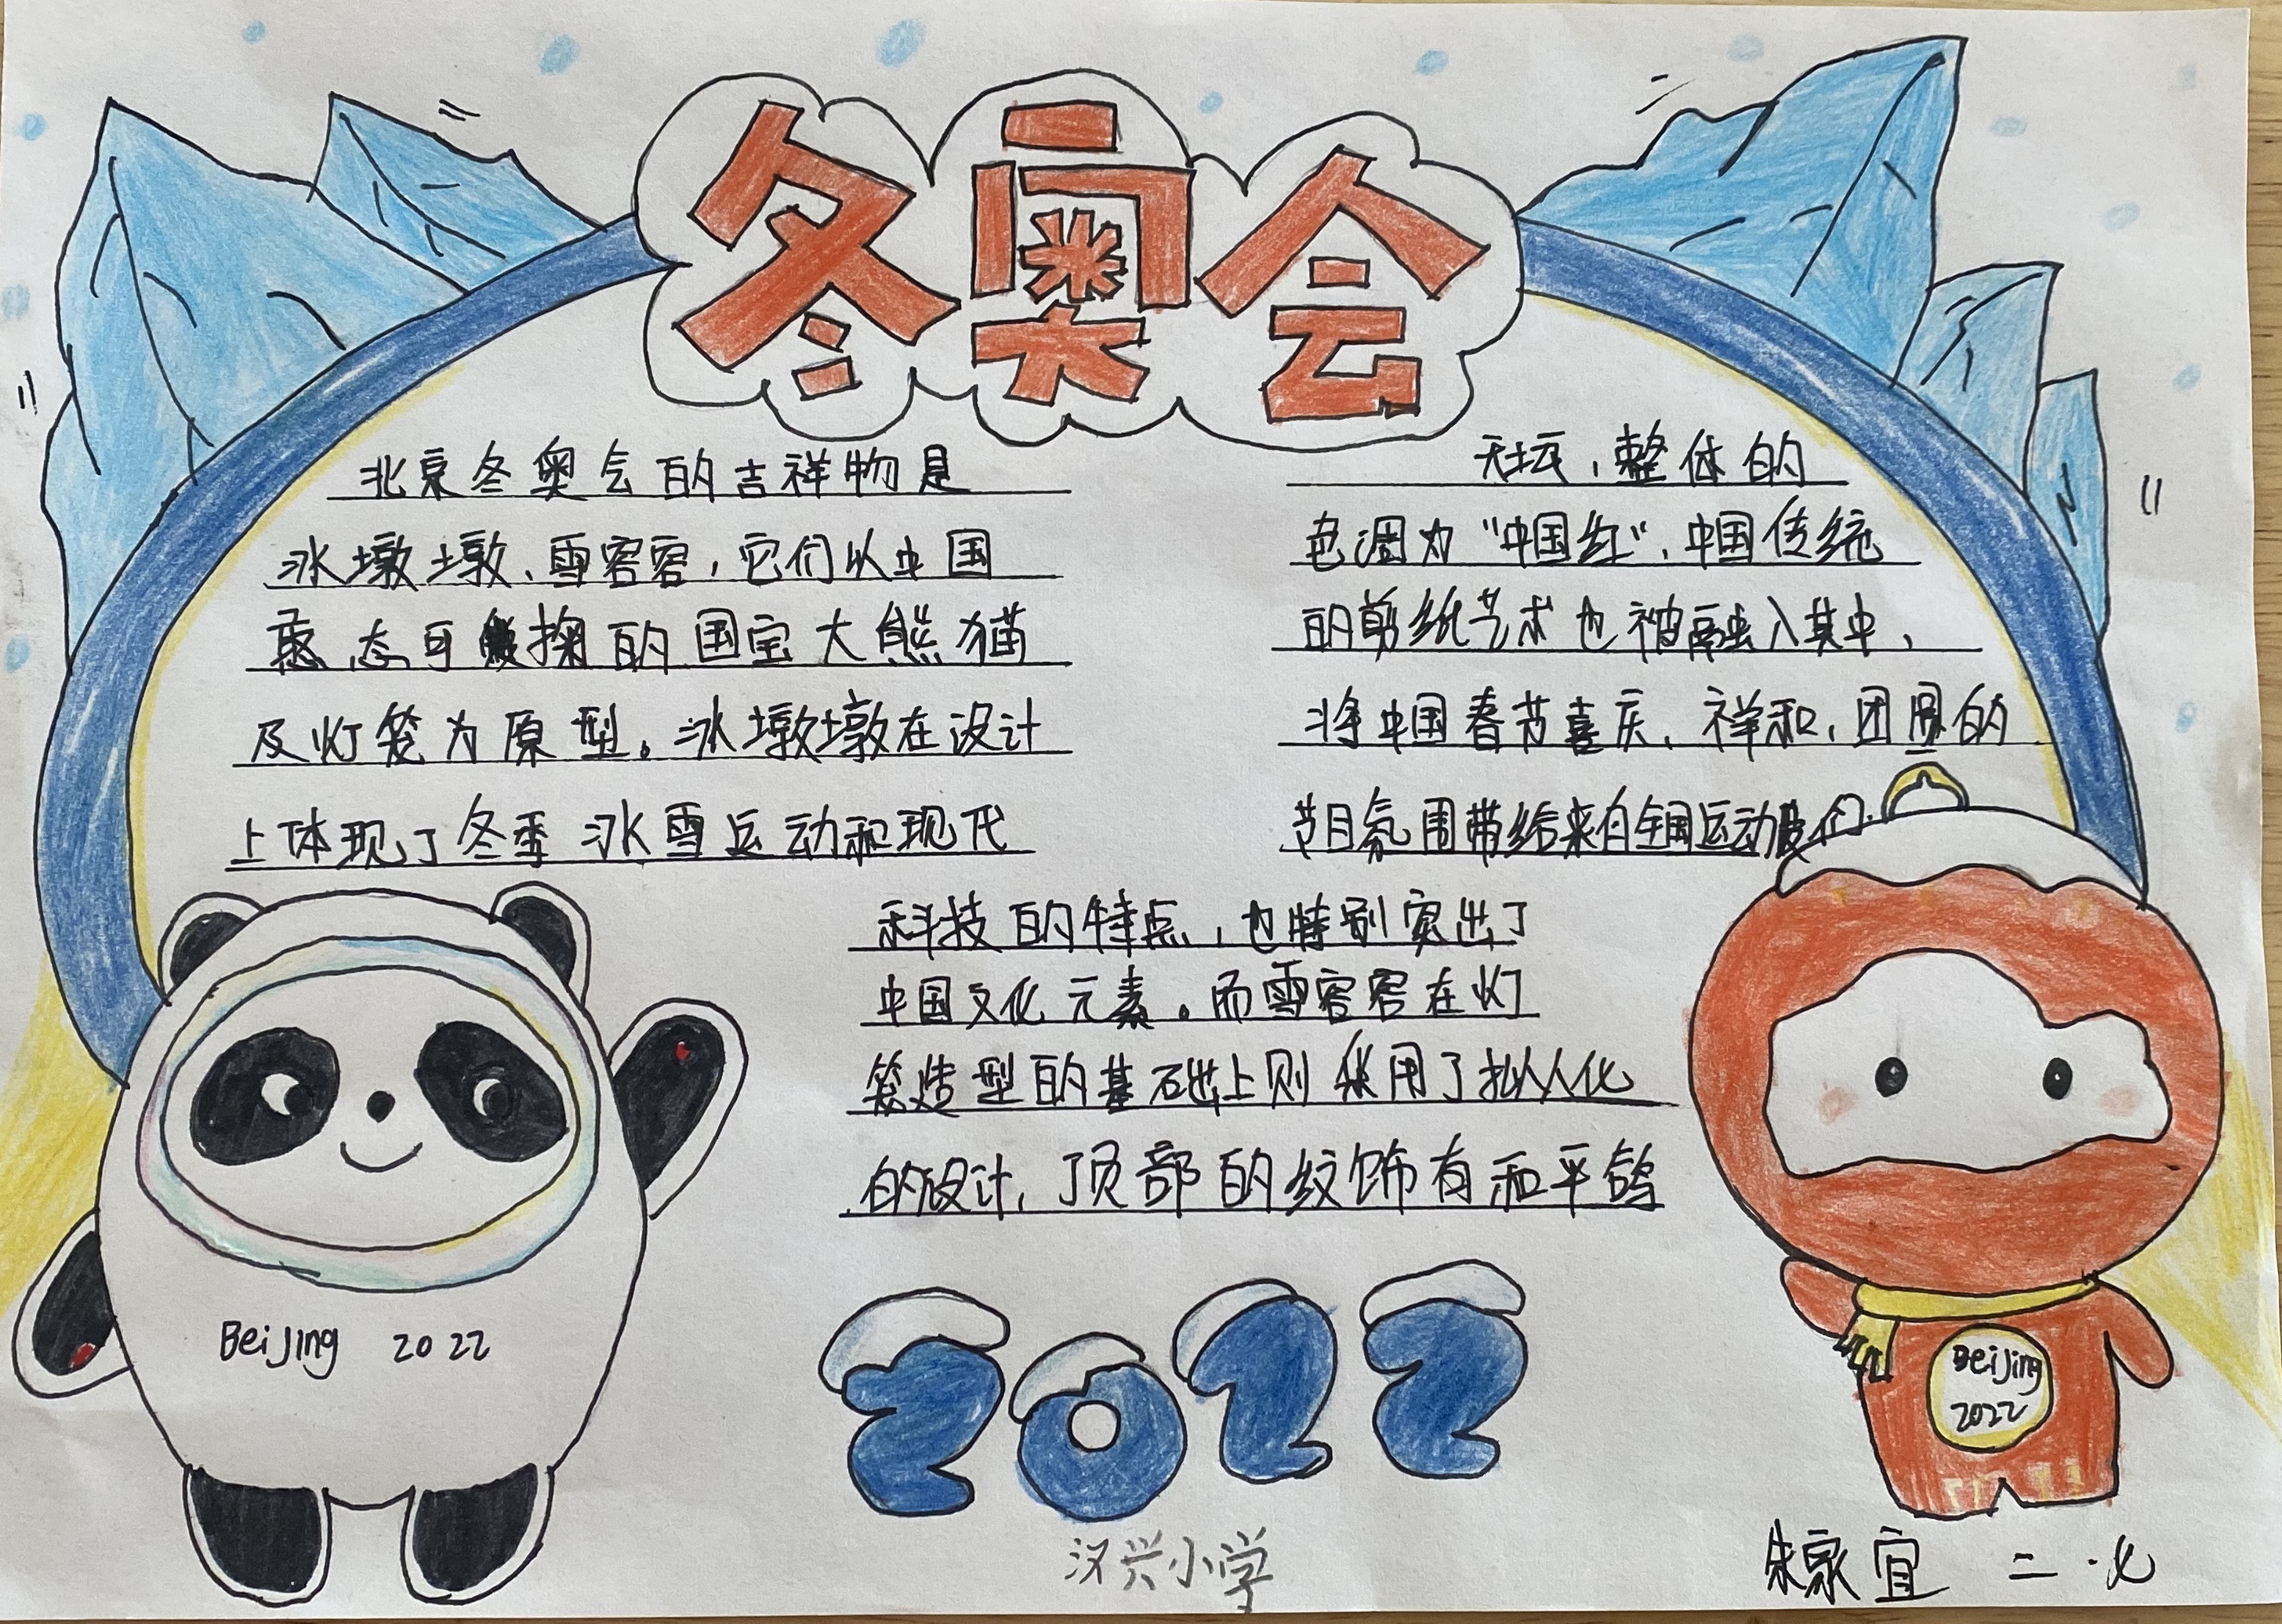 冬奥会
北京冬奥会的吉祥物是
冰墩墩、雪容容,它们以中国
憨态可掬的国宝大熊猫
及灯笼为原型。冰墩墩在设计
上体现了冬季冰雪运动和现代
科技的特点,也特别突出了
中国文化元素。而雪容容在灯
笼造型的基础上则采用了拟人化
的设计,顶部的纹饰有和平鸽
天坛,整体的
色调为“中国红”,中国传统
的剪纸艺术也被融入其中,
将中国春节喜庆、祥和、团圆的
节日氛围带给来自全国运动员们.
Beijing 2022
2022
Beijing
2022
汉兴小学
朱家宜 二·七